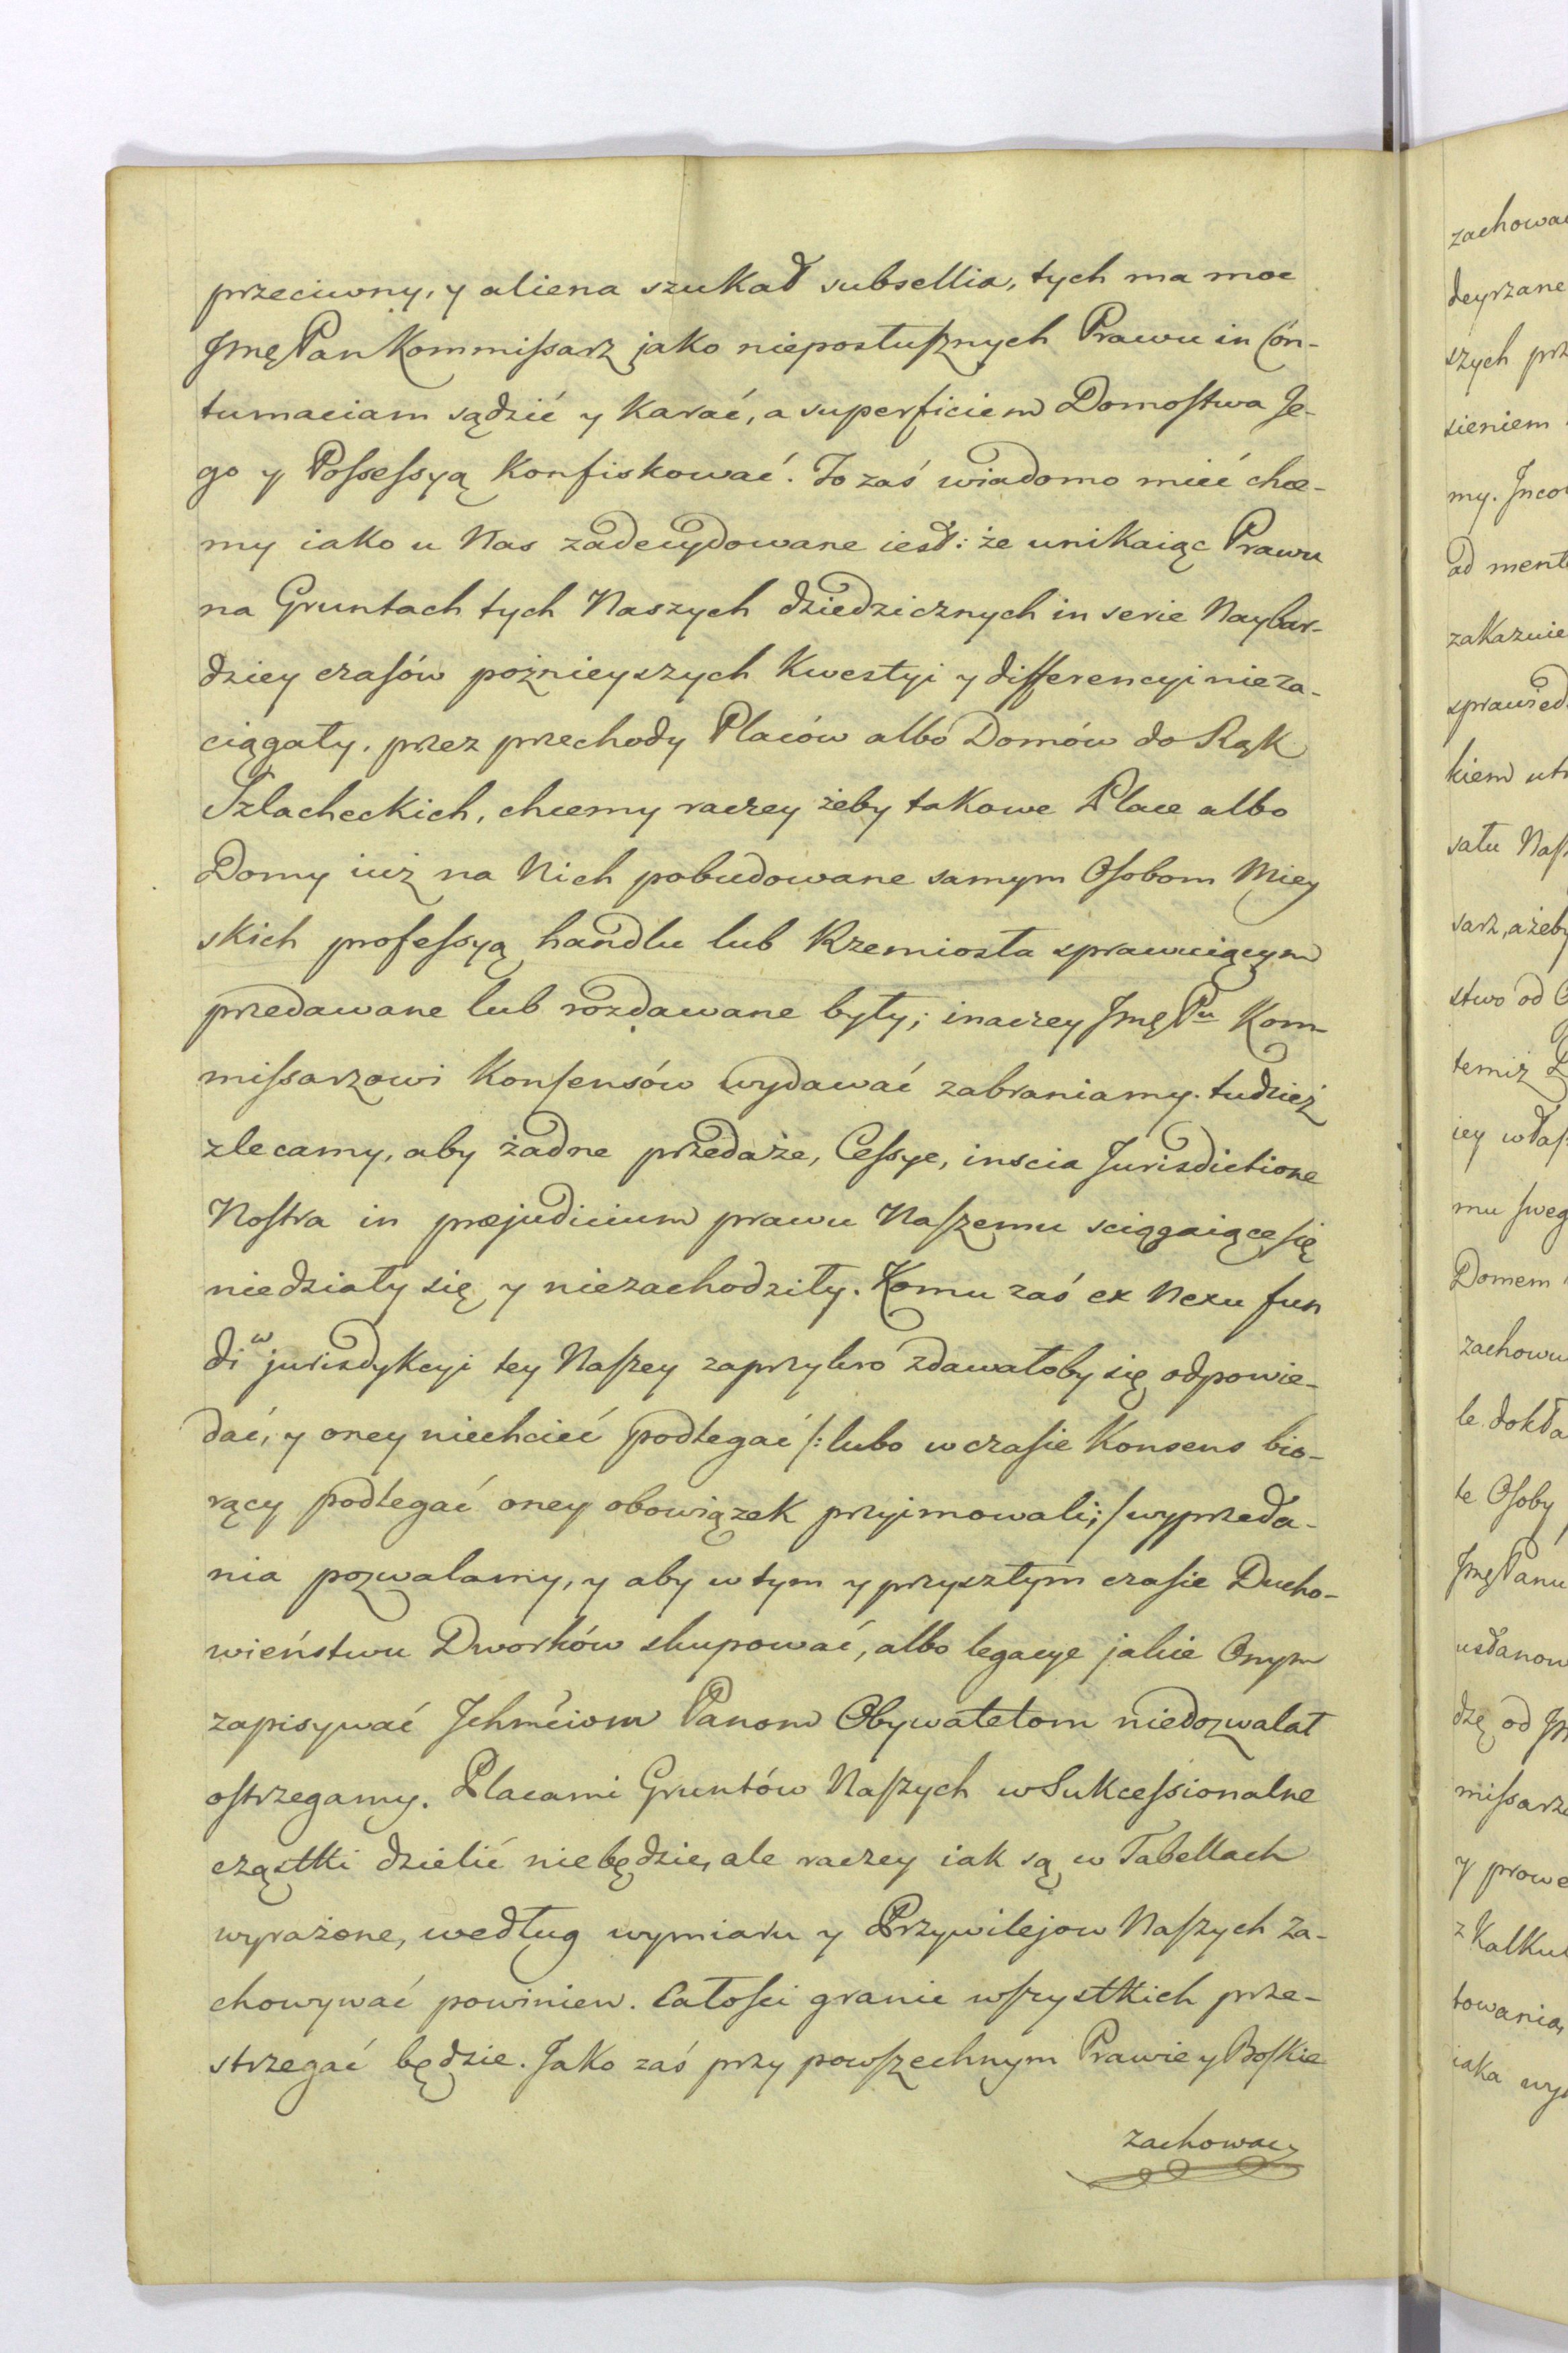 przeciwny, y aliena szukał subsellia, tych ma moc
Jmę Pan Kommissarz jako nieposłusznych Prawu in Con-
tumaciam sądzić y karać, a superficiem Domostwa Je-
go y Possessyą konfiskować. To zaś wiadomo mieć chce-
my iako u Nas zadecydowane iest: że unikaiąc Prawu
na Gruntach tych Naszych dziedzicznych in serie Naybar-
dziey czasów poźnieyszych kwestyi y differencyi nieza-
ciągały, przez przechody Placów albo Domów do Rąk
Szlacheckich, chcemy raczey żeby takowe Place albo
Domy iuż na Nich pobudowane samym Osobom Miey
skich professyą handlu lub Rzemiosła sprawuiącym
przedawane lub rozdawane były; inaczey Jmę Pu Kom-
missarzowi Konsensów wydawać zabraniamy. tudzież
zlecamy, aby żadne przedaże, Cessye, inscia Jurisdictione
Nostra in præjudicium prawu Naszemu sciągaiące się
niedziały się y niezachodziły. Komu zaś ex Nexu fun
di w jurisdykcyi tey Naszey zaprzykro zdawałoby się odpowie-
dać, y oney niechcieć podlegać /: lubo w czasie Konsens bio-
rący podlegać oney obowiązek przyjmowali; / wyprzeda-
nia pozwalamy, y aby w tym y przyszłym czasie Ducho-
wieństwu Dworków skupować, albo legacye jakie Onym
zapisywać Jchmciom Panom Obywatelom niedozwalał
ostrzegamy. Placami Gruntów Naszych w Sukcessionalne
cząstki dzielić niebędzie, ale raczey iak są w Tabellach
wyrażone, według wymiaru y Przywilejow Naszych za-
chowywać powinien. Całości granic wszystkich prze-
strzegać będzie. Jako zaś przy powszechnym Prawie y Boskie
zachowac
zachowa
deyrzane
szych prz
sieniem
my.
ad ment
zakazuie
sprawied
kiem
satu Nas
sarz, ażeby
stwo od
temiż
iey właś
mu sweg
Domem
zachowu
le. dokła
te Osoby
Jmę Panu
ustanow
dzę od Jm
missarz
y prowe
z Kalkul
towania,
iaka wy